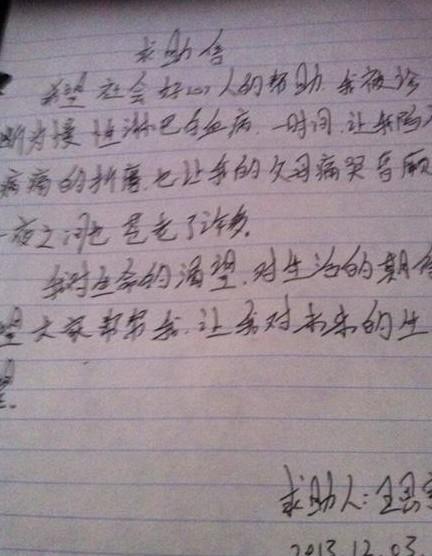 求助信
希望社会好心人的帮助。我被诊
断为慢性淋巴白血病,一时间,让我陷入
病痛的折磨,也让我的父母痛哭昏厥
一夜之间也苍老了许多。
我对生命的渴望,对生活的期待
望大家帮帮我,让我对未来的生
望。
求助人:王
2013.12.03.